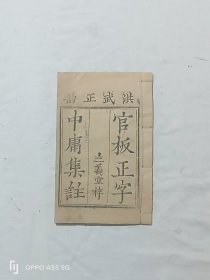 洪武正韵
官板正字
中庸集註
三義堂梓
OPPO A55 5G